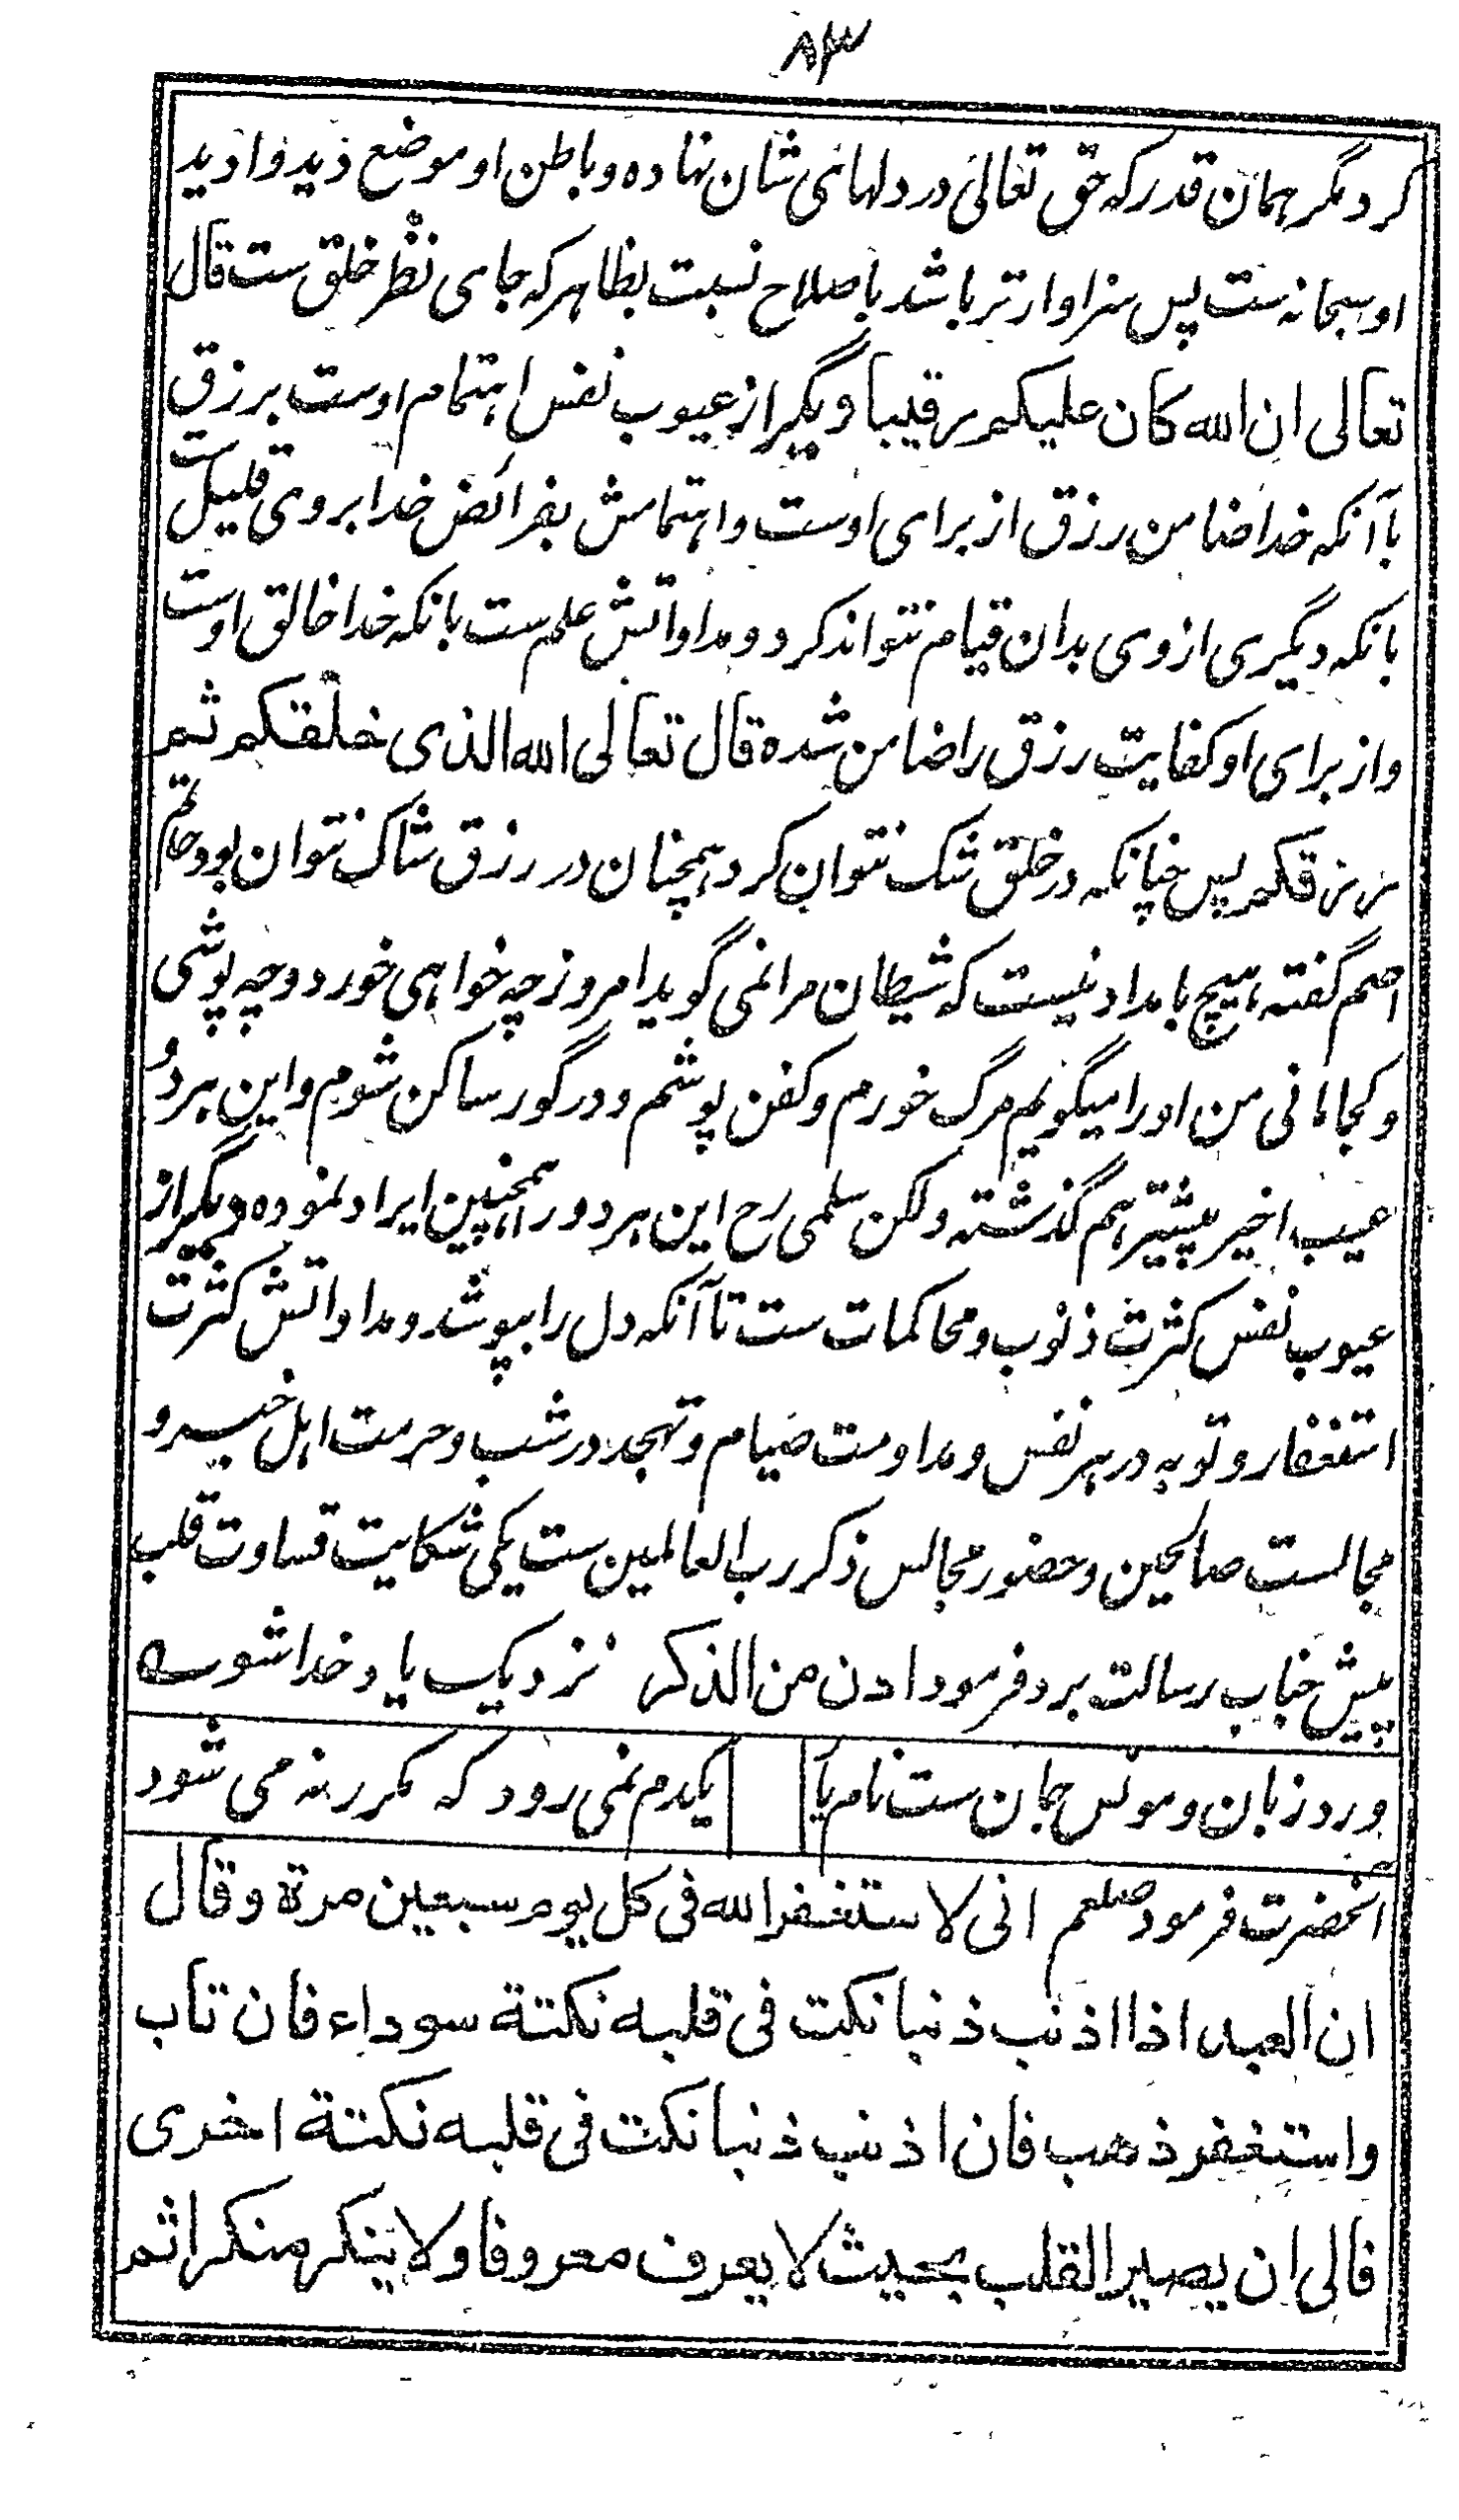 ۸۳
کرد مگر همان قدر که حق تعالی در دلهای شان نهاده و باطن او موضع دید و ادید
او سبحانه ست پس سزاوارتر باشد باصلاح نسبت بظاهر که جای نظر خلق ست قال
تعالی ان الله کان علیکم رقیبا و دیگر از عیوب نفس اهتمام اوست برزق
باآنکه خدا ضامن رزق از برای اوست و اهتمامش بفرائض خدا بروی قلیل ست
بانکه دیگری از وی بدان قیام نتواند کرد و مداواتش علم ست بانکه خدا خالق اوست
و از برای او کفایت رزق را ضامن شده قال تعالی الله الذی خلقکم ثم
رزقکم پس چنانکه در خلق شک نتوان کرد همچنان در رزق شاک نتوان بود حاتم
اصم گفته هیچ بامداد نیست که شیطان مرا نمی گوید امروز چه خواهی خورد و چه پوشی
و کجا مانی من او را میگویم مرگ خورم و کفن پوشم و در گور ساکن شوم و این هر دو
عیب اخیر پیشتر هم گذشته ولکن سلمی رح این هر دو را همچنین ایراد نموده و دیگر از
عیوب نفس کثرت ذنوب و محاکمات ست تا آنکه دل را بپوشد و مداواتش کثرت
استغفار و توبه در هر نفس و مداومت صیام و تهجد در شب و حرمت اهل خیر و
مجالست صالحین و حضور مجالس ذکر رب العالمین ست یکی شکایت قساوت قلب
پیش جناب رسالت برد فرمود ادن من الذکر نزدیک یاد خدا شو ه
ورد زبان و مونس جان ست نام یار یکدم نمی رود که مکرر نه می شود
آنحضرت فرمود صلعم انی لاستغفر الله فی کل یوم سبعین مرة و قال
ان العبد اذا اذنب ذنبا نکت فی قلبه نکتة سوداء فان تاب
واستغفر ذهب فان اذنب ذنبا نکت فی قلبه نکتة اخری
فالی ان یصیر القلب بحیث لا یعرف معروفا ولا ینکر منکرا ثم